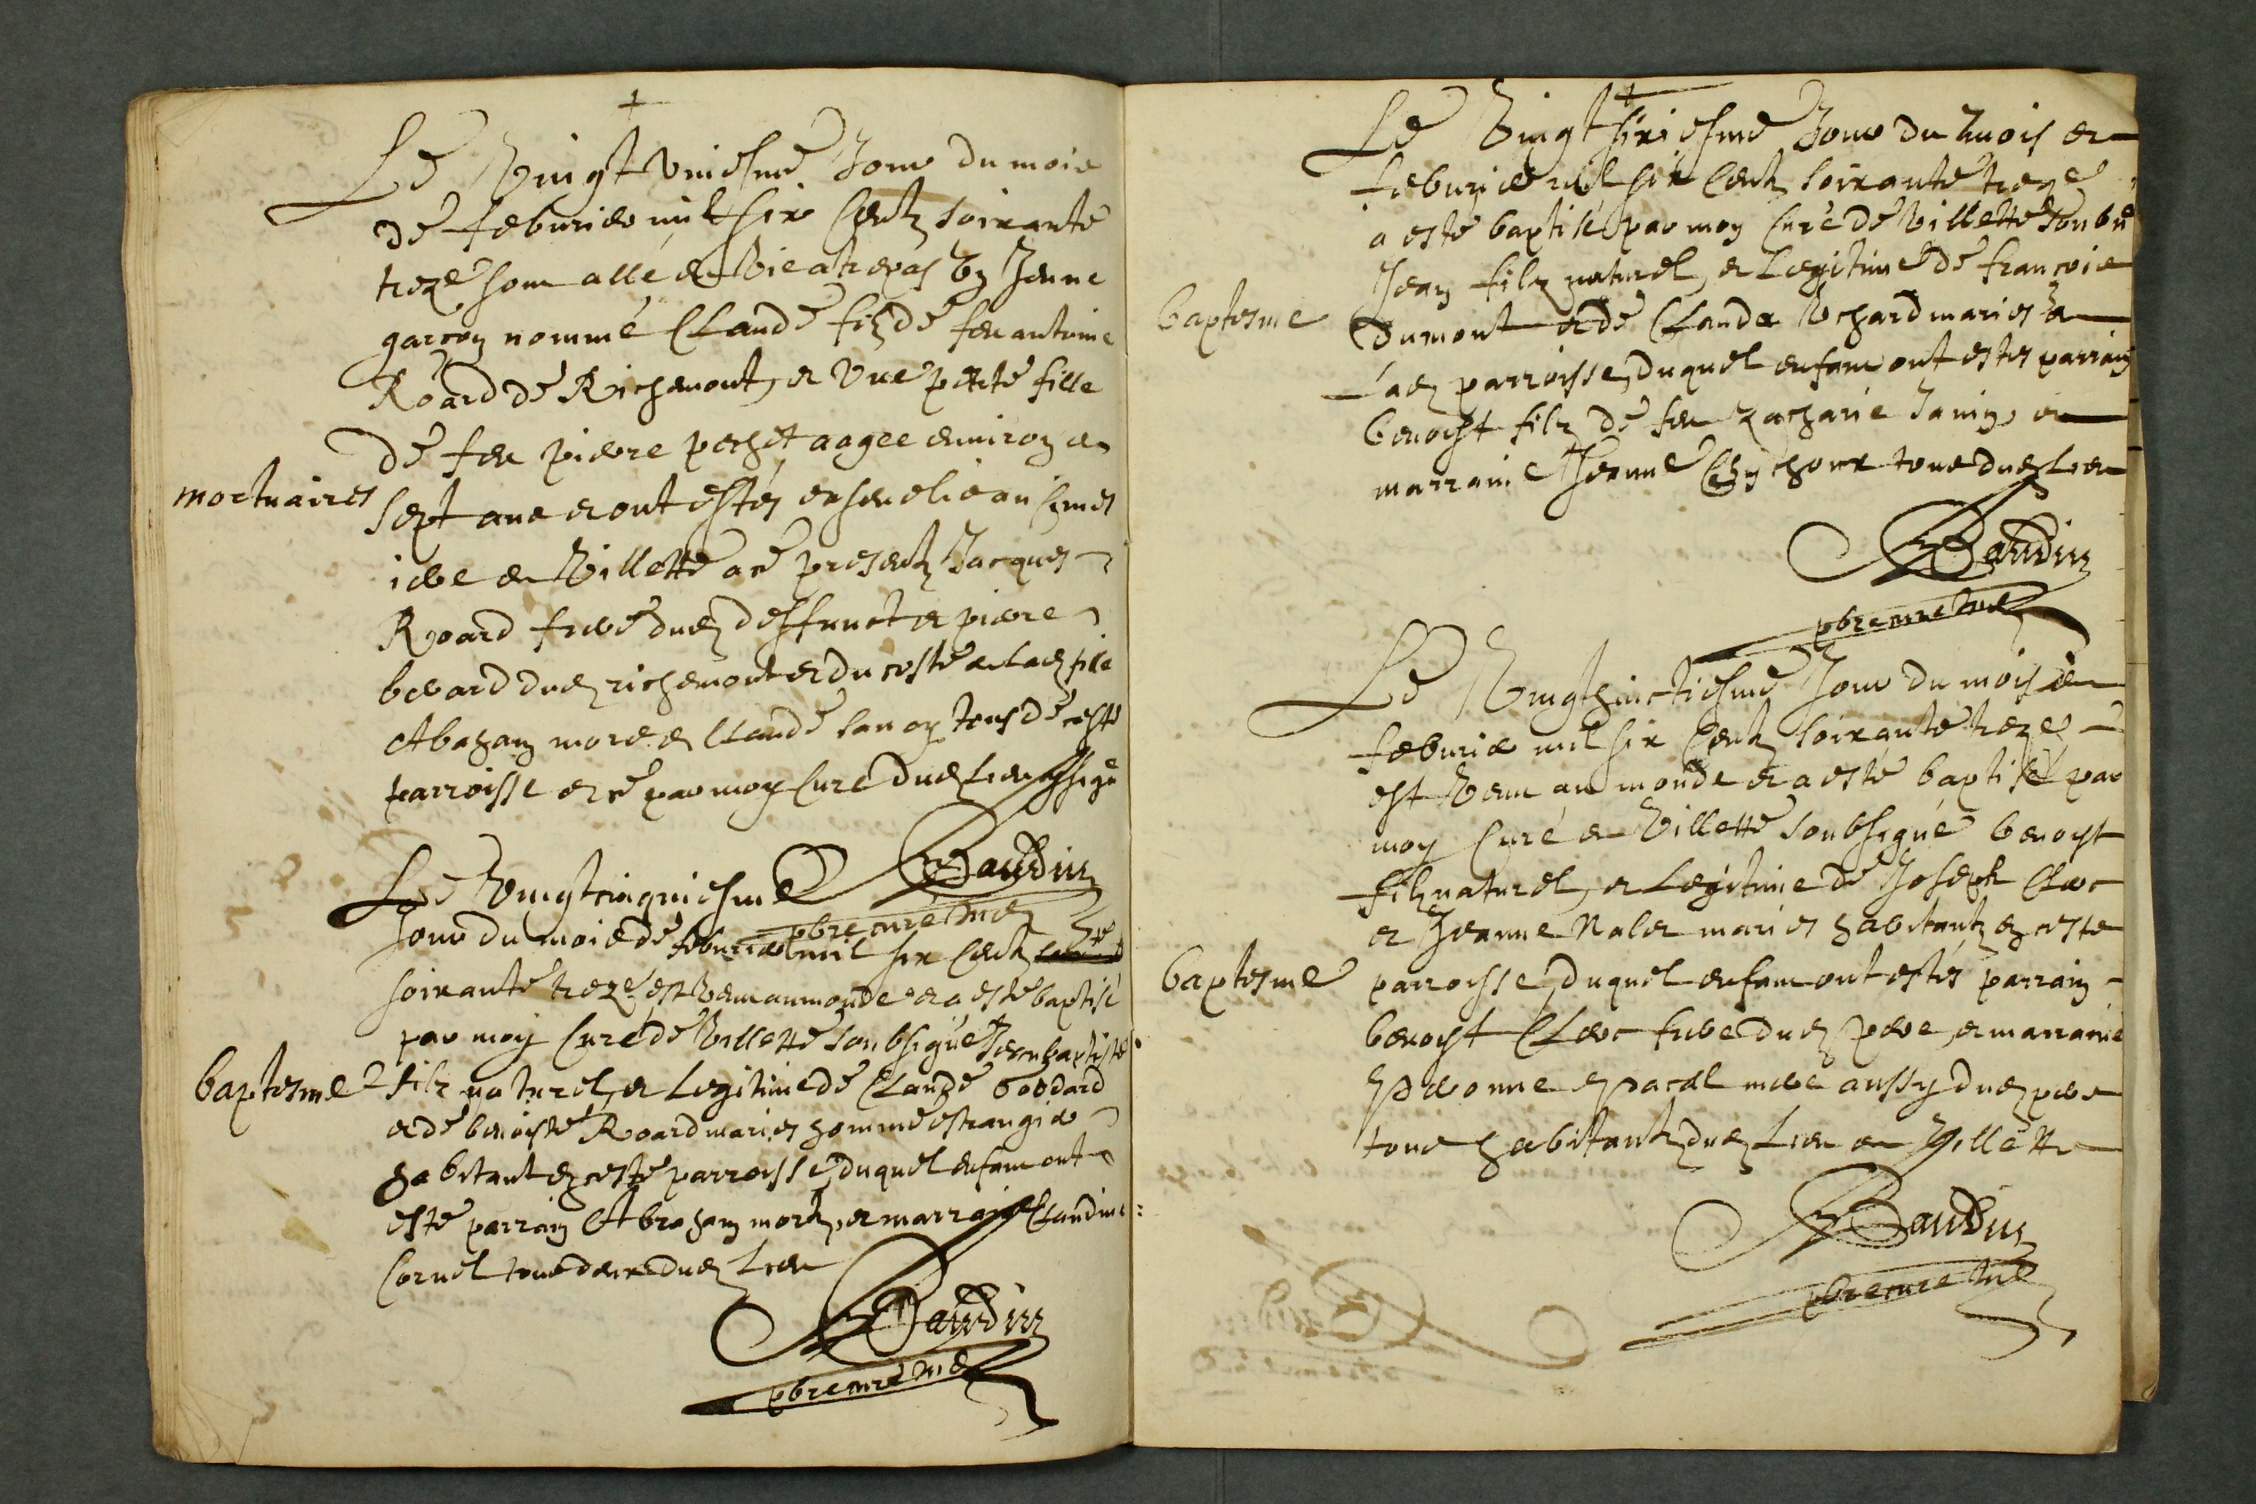 Le Vingt Uniesme Jour du mois
de feburier mil six Centz soixante
treze sont allé de Vie a trepas Un Jeune
garçon nommé Claude filz de feu antoine
Roard de Richemont, et Une petite fille
de feu pierre pochet aagee environ de
mortuaires
sept ans et ont estés ensevelis au cimet
iere de Villette a ce presentz Jacques
Roard frere dud deffunct et pierre
berard dud richemont et du costé de lad fille
Abaham morel et Claude tous de ceste
parroisse et ce par moy Curé dud Lieu
Baudin
pbre curé
Le Vingt cinquiesme
Jour du mois de feburier mil six Centz
soixante treze est Venu au monde et a esté baptisé
par moy Curé de Villette soubsigné Jean baptiste
baptesme
filz naturel, et Legitime de Claude
et de benoiste Roard maries homme estrangier
habitant en ceste parroisse, duquel enfant ont
esté parrain Abraham morel, et marraine Claudine
Cornel tous deux dud Lieu
Baudin
pbre curé
Le Vingt sixiesme Jour du mois de
feburier mil six Centz soixante treze
a esté baptisé par moy Curé de Villette
baptesme
Jean filz naturel, et Legitime de françois
Dumont et de Clauda Richard maries de
Lad parroisse, duquel enfant ont estes parrain
benoist filz de feu Zacharie Janin, et
marraine Jeanne tous dud Lieu
Baudin
pbre curé
Le Vingt huictiesme Jour du mois de
feburier mil six Centz soixante treze
est Venu au monde et a esté baptisé par
moy Curé de Villette soubsigné benoist
filz naturel, et Legitime de Joseph Clerc
et Jeanne maries habitantz en ceste
baptesme
parroisse, duquel enfant ont estés parrain
benoist Clerc frere dud pere, et marraine
mere aussy dud pere
tous habitantz dud Lieu de Villette
Baudin
pbre curé